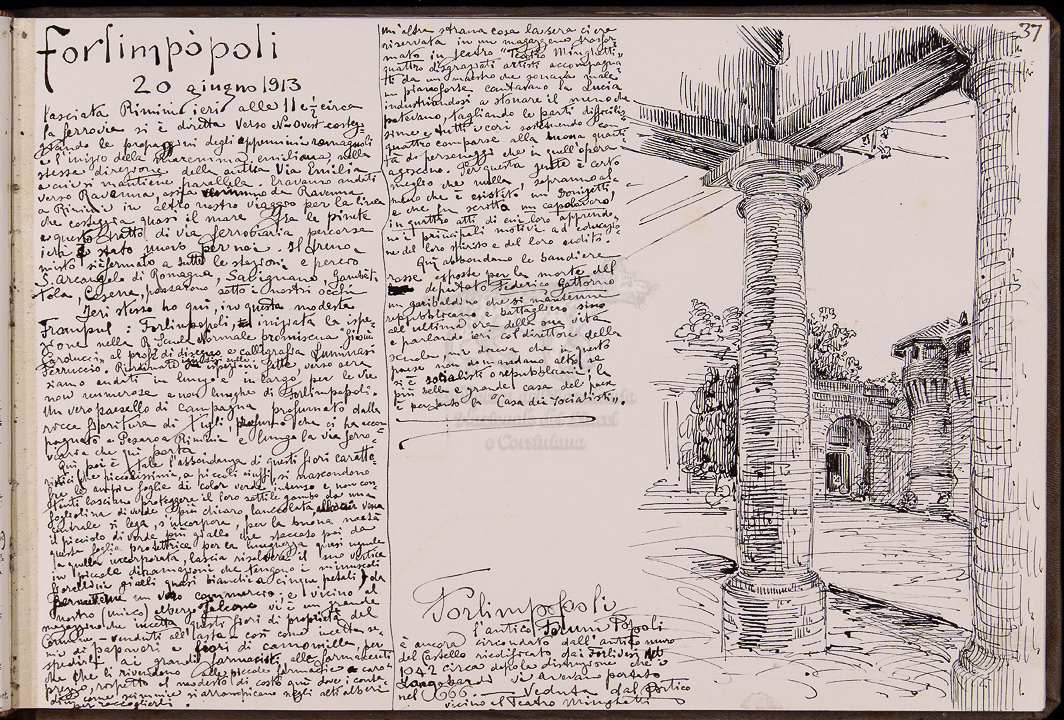 37
Forlimpòpoli
20 giugno 1913
Lasciata Rimini ieri alle 11 e ½ circa
la ferrovia si è diretta verso N-Ovest costeg-
giando le propaggini degli appennini romagnoli
e l'inizio della Maremma emiliana, nella
stessa direzione della antica Via Emilia
a cui si mantiene parallela. Eravamo
verso Ravenna, ossia da Ravenna
a Rimini in nostro viaggio per la linea
che costeggia quasi il mare tra le pinete
e questo tratto di via ferroviaria percorsa
ieri è stato nuovo per noi. Il treno
misto si è fermato a tutte le stazioni e perciò
S. Arcangelo di Romagna, Savignano, Gambet-
tola, Cesena, passarono sotto i nostri occhi
Ieri stesso ho qui, in questa modesta
Frampul: Forlimpòpoli, iniziata la ispe-
zione nella R. Scuola Normale promiscua "Giosuè
Carducci" al prof. di disegno e calligrafia
Ferruccio. ispezioni fatte, verso sera
siamo andati in lungo e in largo per le vie
non numerose e non lunghe di Forlimpòpoli.
Un vero paesello di campagna profumato dalla
fioritura di tigli, profumo che ci ha accom-
pagnato a Pesaro a Rimini e lungo la via ferro-
viaria che qui porta.
Qui poi è tale l'abbondanza di questi fiori caratte-
ristici che piccolissimi, a piccoli ciuffi, si nascondono
fra le ampie foglie di color verde intenso e
lasciano proteggere il loro sottile gambo da una
fogliolina di verde più chiaro, lanceolata,
centrale si lega, s'incorpora, per la buona metà
il picciolo di verde più giallo che staccato poi da
questa foglia protettrice per la lunghezza quasi uguale
a quella incorporata, lascia il suo vertice
in piccole diramazioni che tengono i minuscoli
fiorellini gialli quasi bianchi a cinque petali, da
permetterne un vero commercio; e vicino al
nostro (unico) albergo Falcone vi è un grande
magazzeno che incetta questi fiori di proprietà del
Comune - venduti all'asta - così come incetta se-
mi di papaveri e fiori di camomilla per
spedirli ai grandi farmacisti
che li rivendono alle piccole farmacie a caro
prezzo, rispetto al modesto di costo qui dove i conta-
dini come scimmie si arrampicano sugli alti alberi
per raccoglierli.
Un'altra strana cosa la sera ci era
riservata in un magazzeno trasfor-
mato in teatro "Teatro Minghetti"
quattro disgraziati artisti accompagna-
ti da un maestro che sonava male
un pianoforte cantavano la Lucia
industriandosi a stonare il meno che
potevano, tagliando le parti difficilis-
sime e tutti i cori sostenendo con
quattro comparse alla buona quanti-
tà di personaggi che in quell'opera
agiscono. Per questa gente è certo
meglio che nulla: sapranno al-
meno che è esistito un Donizetti
e che fu scritto un capolavoro
in quattro atti di cui loro apprendo-
no i principali motivi ad educazio-
ne del loro spirito e del loro udito.
Qui abbondano le bandiere
rosse esposte per la morte del
deputato Federico Gattorno
un garibaldino che si mantenne
repubblicano battagliero sino
all'ultima ora della sua vita
e parlando io col direttore della
scuola mi diceva che in questo
paese non si guarda alto se
si è socialisti o repubblicani: la
più bella e grande casa del paese
è pertanto la "Casa dei Socialisti".
Forlimpòpoli
l'antico Forum Popoli
è ancora circondato dall'antico muro
del Castello riedificato dai forlivesi nel
circa dopo la distruzione che i
Longobardi vi avevan portato
nel 666. Veduta dal portico
vicino al Teatro Minghetti